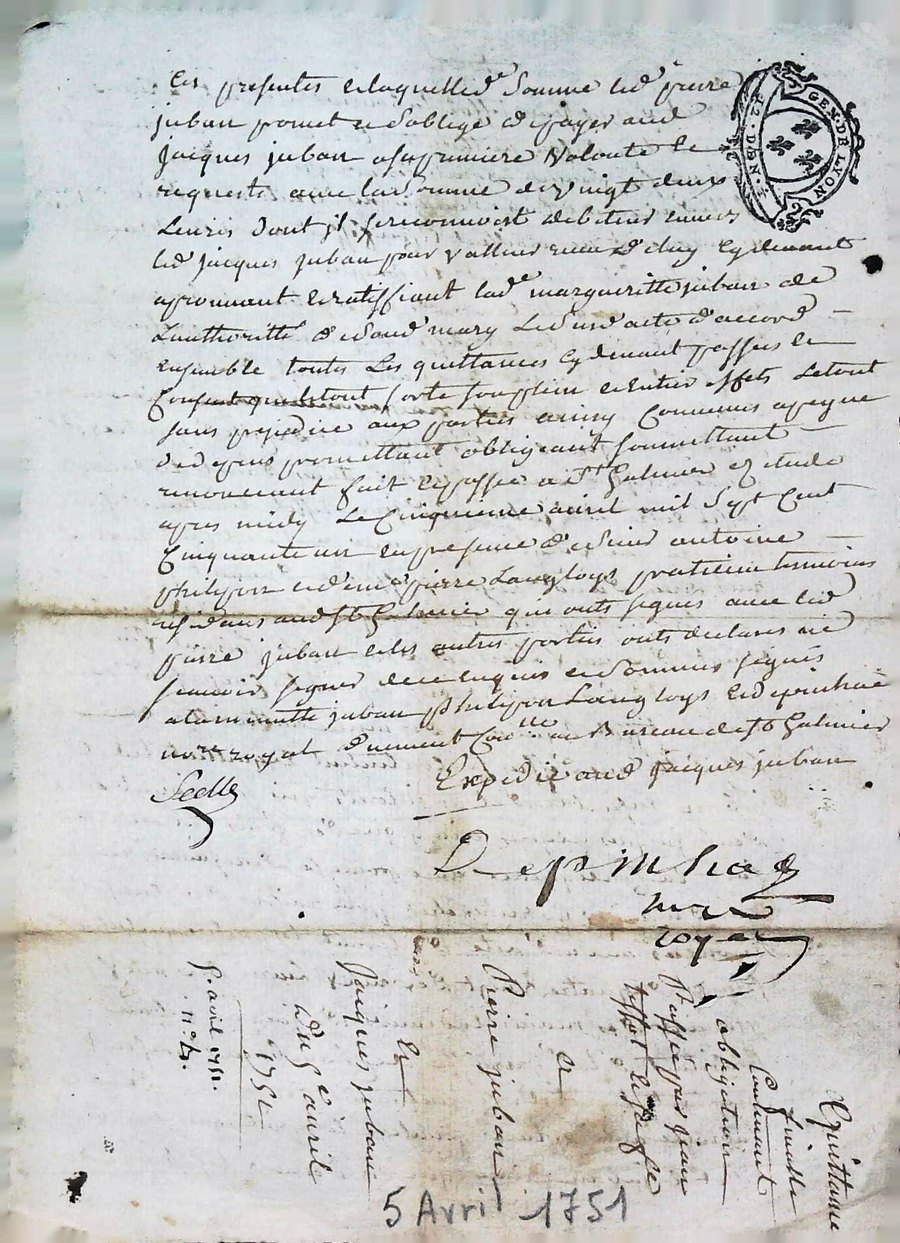 les presentes et laquelle d.e somme led pierre
juban promet et soblige de payer aud
jacques juban a sa premiere volonté et
requeste avec la somme de vingt deux
Livres dont il se reconnoist debiteur envers
led jacques juban pour valleur cy devant
aprouvant et ratiffiant lad.e margueritte juban de
Lauthorité de sond mary Led acte d'accord
ensemble touttes Les quittances cy devant passées et
sorte son plein et entier effets Le tout
sans prejudice aux parties ainsy Convenus a peyne
de depens promettant obligeant soumettant
renonceant fait et passé a St Galmier etude
apres midy Le Cinquieme avril mil sept Cent
Cinquante un en presence de sieur antoine
philipon et de me pierre Langloys praticien temoins
residans aud St Galmier qui onts signés avec led
pierre juban et les autres parties onts declarés ne
scavoir signer de ce enquis et sommés signés
a la minutte juban philipon Langloys et depinhac
no.re royal duement Con.llé au Bureau de St Galmier
Scellé
Expedié aud jacques juban
Depinhac
no.re
royal
Quittance
finalle
Contenant
obligation
Passée par jean
et
Pierre juban
et
Jacques juban
Du 5.e avril
1751
5. avril 1751.
n.o
GEN. DE LYON
2. DEN.
5 Avril 1751